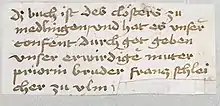 dz buch ist des closters zu
medlingen · vnd hat es vnser
confent · durch got geben
vnser erwirdige muter
priorin bruder franz schlei
cher zu vlm